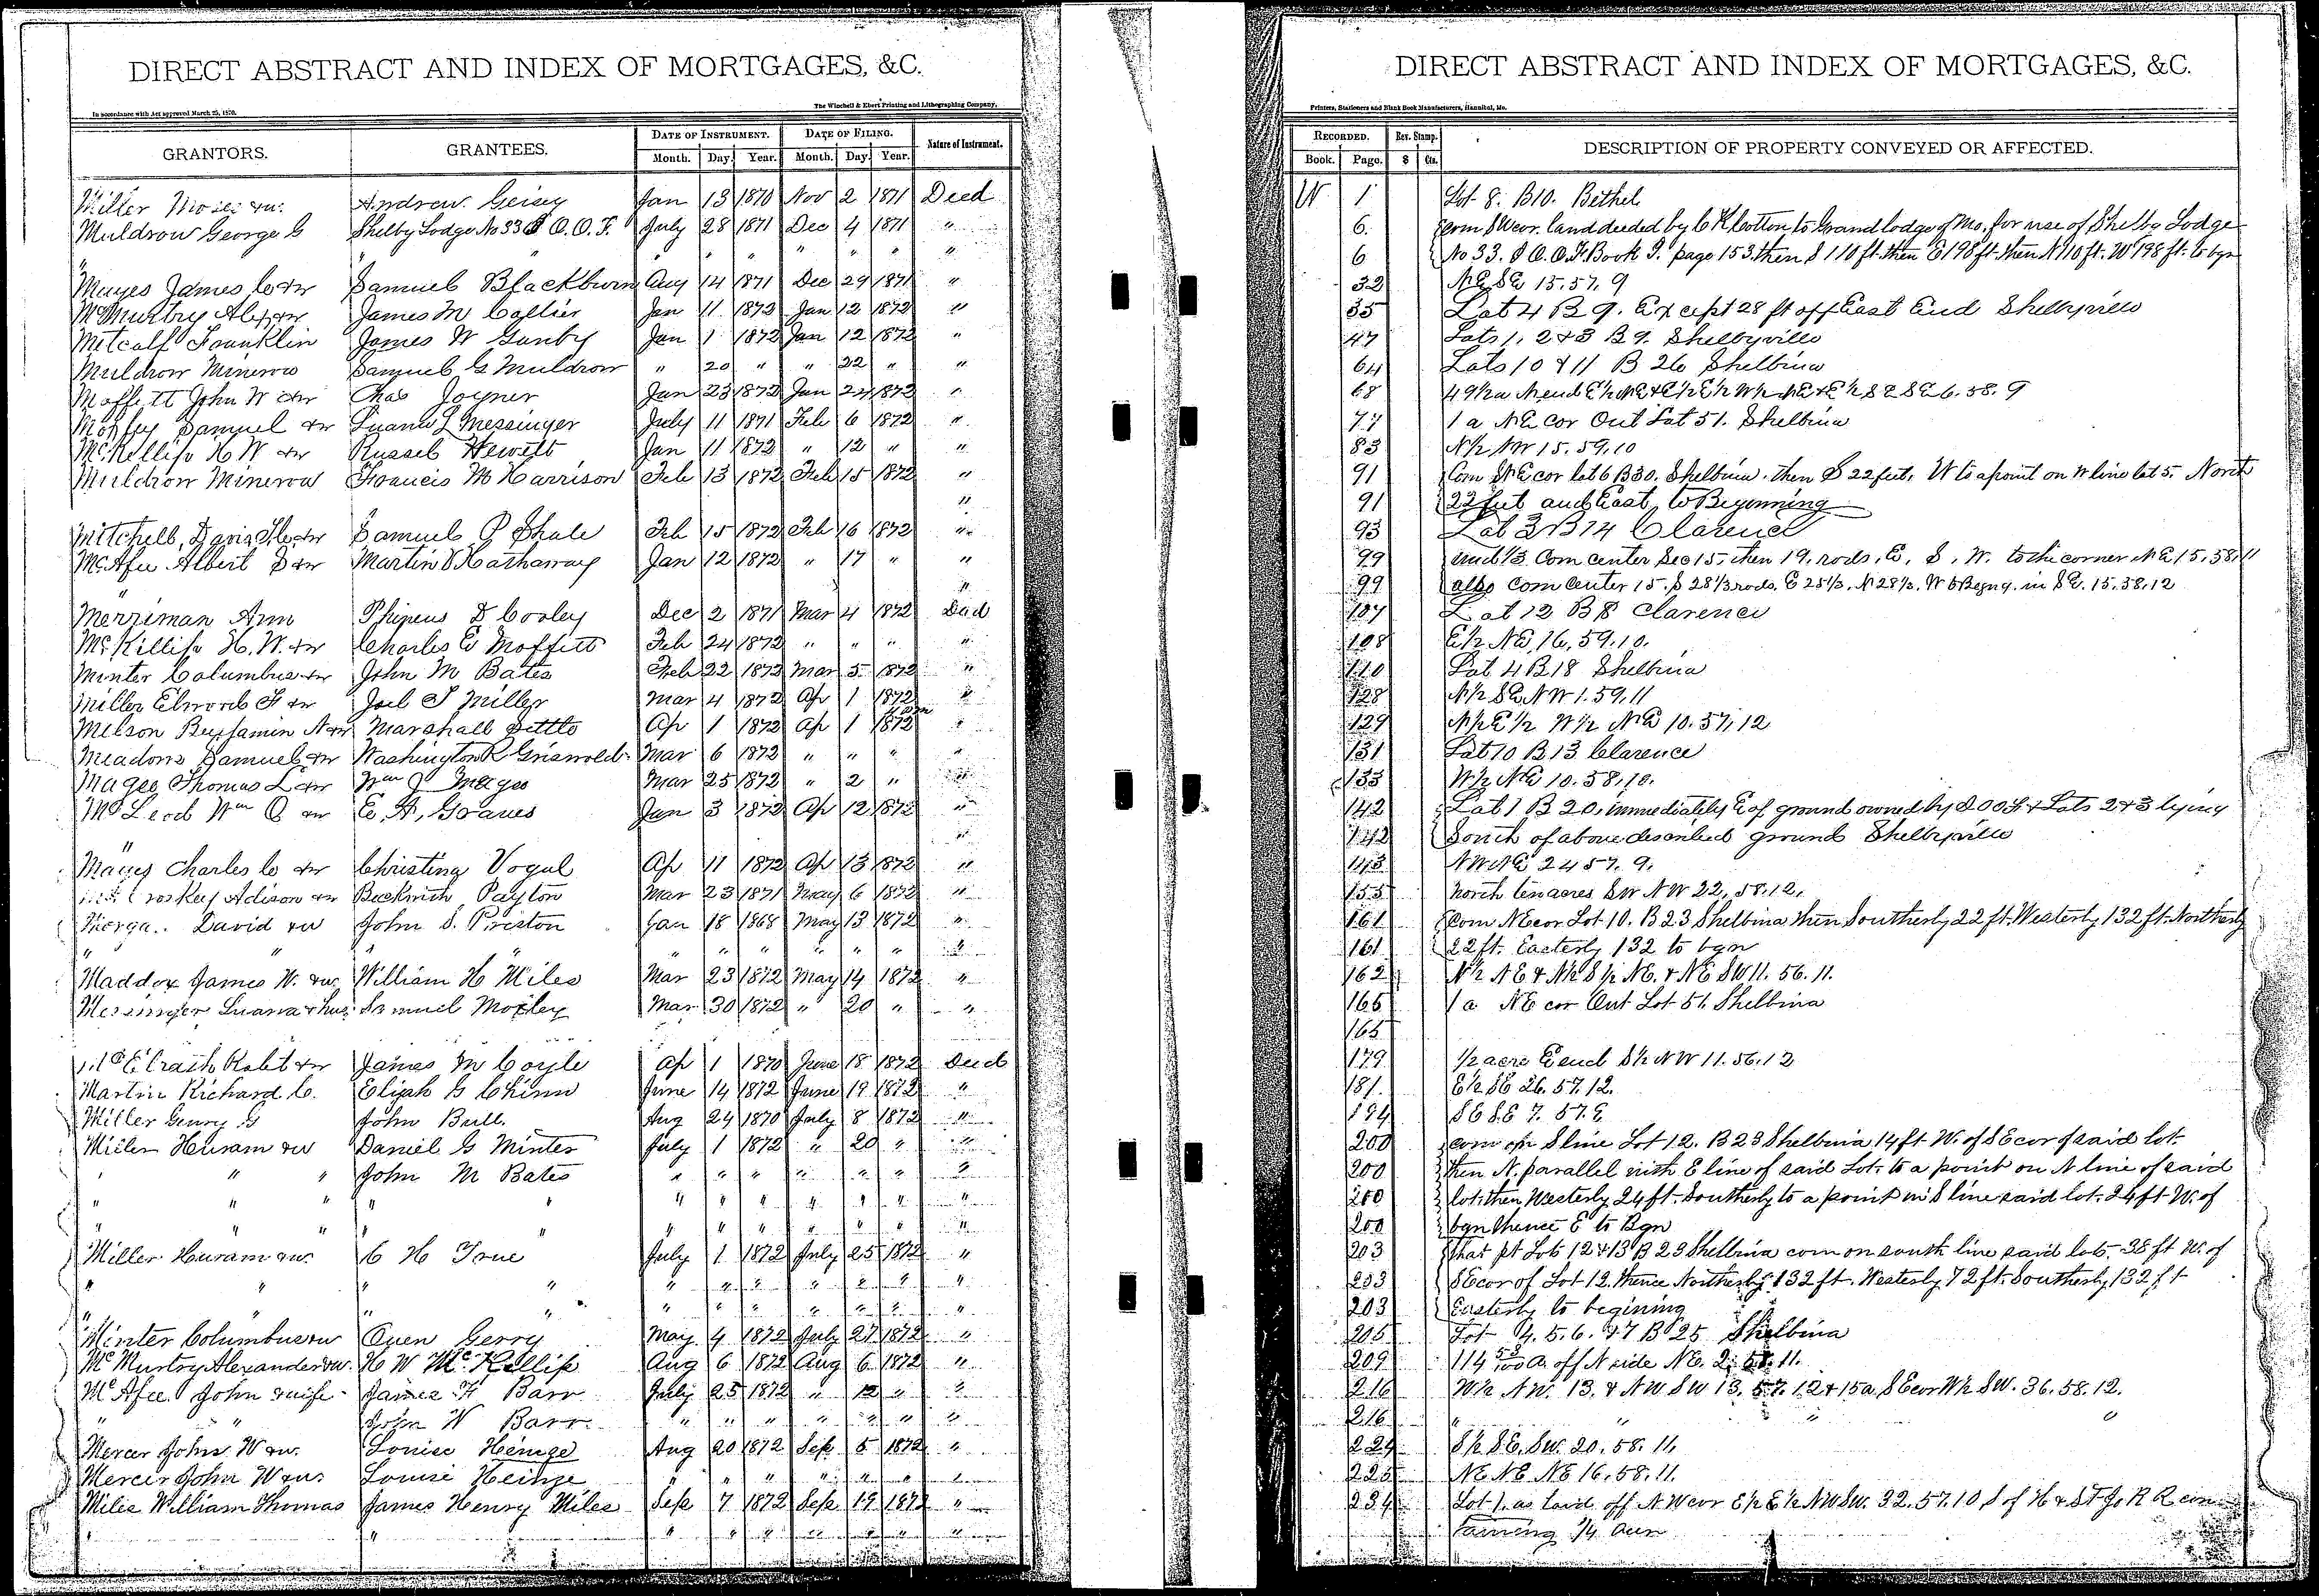 DIRECT ABSTRACT AND INDEX OF MORTGAGES, &C.
In accordance with Act approved March 25, 1870.
The Winchell & Ebert Printing and Lithographing Company,
GRANTORS. GRANTEES. DATE OF INSTRUMENT. DATE OF FILING. Nature of Instrument.
Month. Day. Year. Month. Day. Year.
Miller Moses &w. Andrew Geisy Jan 13 1870 Nov 2 1871 Deed
Muldrow George G Shelby Lodge No 33 I O. O. F. July 28 1871 Dec 4 1871 "
" " " " " " " "
Mayes James C &w Samuel Blackburn Aug 14 1871 Dec 29 1871 "
McMurtry Alex &w James M Collier Jan 11 1872 Jan 12 1872 "
Metcalf Franklin James W Gunby Jan 1 1872 Jan 12 1872 "
Muldrow Minerva Samuel G Muldrow " 20 " " 22 " "
Moffett John W &w Chas Joyner Jan 23 1872 Jan 24 1872 "
Samuel &w Luana L Messinger July 11 1871 Feb 6 1872 "
McKillip H W &w Russel Hewitt Jan 11 1872 " 12 " "
Muldrow Minerva Francis M Harrison Feb 13 1872 Feb 15 1872 "
"
Mitchell, Davis &w Samuel P Shale Feb 15 1872 Feb 16 1872 "
McAfee Albert D &w Martin D Hathaway Jan 12 1872 " 17 " "
" "
Merriman Ann Phineus D Cooley Dec 2 1871 Mar 4 1872 Deed
McKillip H. W. &w Charles E Moffitt Feb 24 1872 " " " "
Minter Columbus &w John M Bates Feb 22 1872 Mar 5 1872 "
Miller Elwood F &w Joel S Miller Mar 4 1872 Ap 1 1872 "
Melson Benjamin N &w Marshall Settle Ap 1 1872 Ap 1 1872 "
Meadows Samuel &w Washington R Griswold Mar 6 1872 " " " "
Magee Thomas L &w Wm J Magee Mar 25 1872 " 2 " "
McLeod Wm O &w E. A. Graves Jan 3 1872 Ap 12 1872 "
" "
Mayes Charles C &w Christina Vogel Ap 11 1872 Ap 13 1872 "
Adison &w Beckwith Payton Mar 23 1871 May 6 1872 "
David &w John S. Preston Jan 18 1868 May 13 1872 "
" " " " " " " " " "
Maddox James W. &w. William H Miles Mar 23 1872 May 14 1872 "
Messinger Luana & hus. Samuel Moxley Mar 30 1872 " 20 " "
Robt &w James M Coyle Ap 1 1870 June 18 1872 Deed
Martin Richard C. Elijah G Chinn June 14 1872 June 19 1872 "
Miller Henry G John Bull. Aug 24 1870 July 8 1872 "
Miller Huram &w Daniel G Minter July 1 1872 " 20 " "
" " " John M Bates " " " " " " "
" " " " " " " " " " " "
" " " " " " " " " " " "
Miller Huram &w. C H True July 1 1872 July 25 1872 "
" " " " " " " " " " "
" " " " " " " " " " "
Minter Columbus &w Owen Gerry May 4 1872 July 27 1872 "
McMurtry Alexander &w. H W McKillip Aug 6 1872 Aug 6 1872 "
McAfee John & wife James H Barr July 25 1872 " 12 " "
" " John W Barr " " " " " " "
Mercer John W &w. Louise Heinze Aug 20 1872 Sep. 5 1872 "
Mercer John W &w. Louise Heinze " " " " " " "
Miles William Thomas James Henry Miles Sep 7 1872 Sep 19 1872 "
" " " " " " " " "
DIRECT ABSTRACT AND INDEX OF MORTGAGES, &C.
Printers, Stationers and Blank Book Manufacturers, Hannibal, Mo.
RECORDED. Rev. Stamp. DESCRIPTION OF PROPERTY CONVEYED OR AFFECTED.
Book. Page. $ Cts.
W 1 Lot 8. B10. Bethel
6. Com SW cor. land deeded by C K Cotton to Grand lodge of Mo. for use of Shelby Lodge
6 No 33. I O. O. F. Book I. page 153. then S 110 ft. then E 198 ft. then N 110 ft. W 198 ft. to bgn
32 NE SE 15. 57. 9
35 Lot 4 B 9. Except 28 ft off East End Shelbyville
47 Lots 1, 2 & 3 B 9. Shelbyville
64 Lots 10 & 11 B 26 Shelbina
68 49½ a N end E½ NE & E½ E½ W½ NE & E½ SE SE 6. 58. 9
77 1 a NE cor Out Lot 51. Shelbina
83 N½ NW 15. 59. 10
91 Com NE cor lot 6 B30. Shelbina. then S 22 feet, W to a point on W line lot 5. North
91 22 feet and East to Beginning
93 Lot 3 B 14 Clarence
99 und ⅓ Com center Sec 15, then 19. rods, E, S, W. to the corner NE 15. 58. 11
99 also Com Center 15. S 28⅓ rods. E 25⅓, N 28⅓, W to Begng. in SE. 15. 58. 12
107 Lot 12 B 8 Clarence
108 E½ NE 16, 59. 10.
110 Lot 4 B 18 Shelbina
128 N½ SE NW 1. 59. 11
129 N½ E½ W½ NE 10. 57, 12
131 Lot 10 B 13 Clarence
133 W½ NE 10. 58, 10.
142 Lot 1 B 20, immediately E of ground owned by I O O F & Lots 2 & 3 lying
142 South of above described ground Shelbyville
143 NW NE 24 57. 9.
155 North ten acres SW NW 22, 58. 12.
161 Com NE cor Lot 10. B 23 Shelbina then Southerly 22 ft. Westerly 132 ft. Northerly
161 22 ft. Easterly 132 to bgn
162 N½ NE & N½ S½ NE. & NE SW 11. 56. 11.
165 1 a NE cor Out Lot 51 Shelbina
165
179 ½ acre E end S½ NW 11. 56. 12
181. E½ SE 26. 57. 12.
194 SE SE 7. 57. 9
200 com on S line Lot 12. B 23 Shelbina 14 ft W. of SE cor of said lot.
200 then N. parallel with E line of said Lot. to a point on N line of said
200 lot. then Westerly 24 ft. Southerly to a point in S line said lot. 24 ft W. of
200 bgn thence E to Bgn
203 that pt Lots 12 & 13 B 23 Shelbina com on south line said lots. 38 ft W. of
203 SE cor of Lot 12. thence Northerly 132 ft. Westerly 72 ft. Southerly 132 ft
203 Easterly to begining
205 Lot 4. 5. 6. & 7 B 25 Shelbina
209 114 53/100 a. off N side NE. 2. 58. 11.
216 W½ NW. 13. & NW SW 13. 57. 12 & 15 a SE cor W½ SW. 36. 58. 12.
216 " " " "
224 S½ SE. SW. 20. 58. 11.
225 NE NE NE 16. 58. 11.
234 Lot 1. as laid off NW cor E½ E½ NW SW. 32. 57. 10 S of H & St Jo R R con
taining ¼ acre